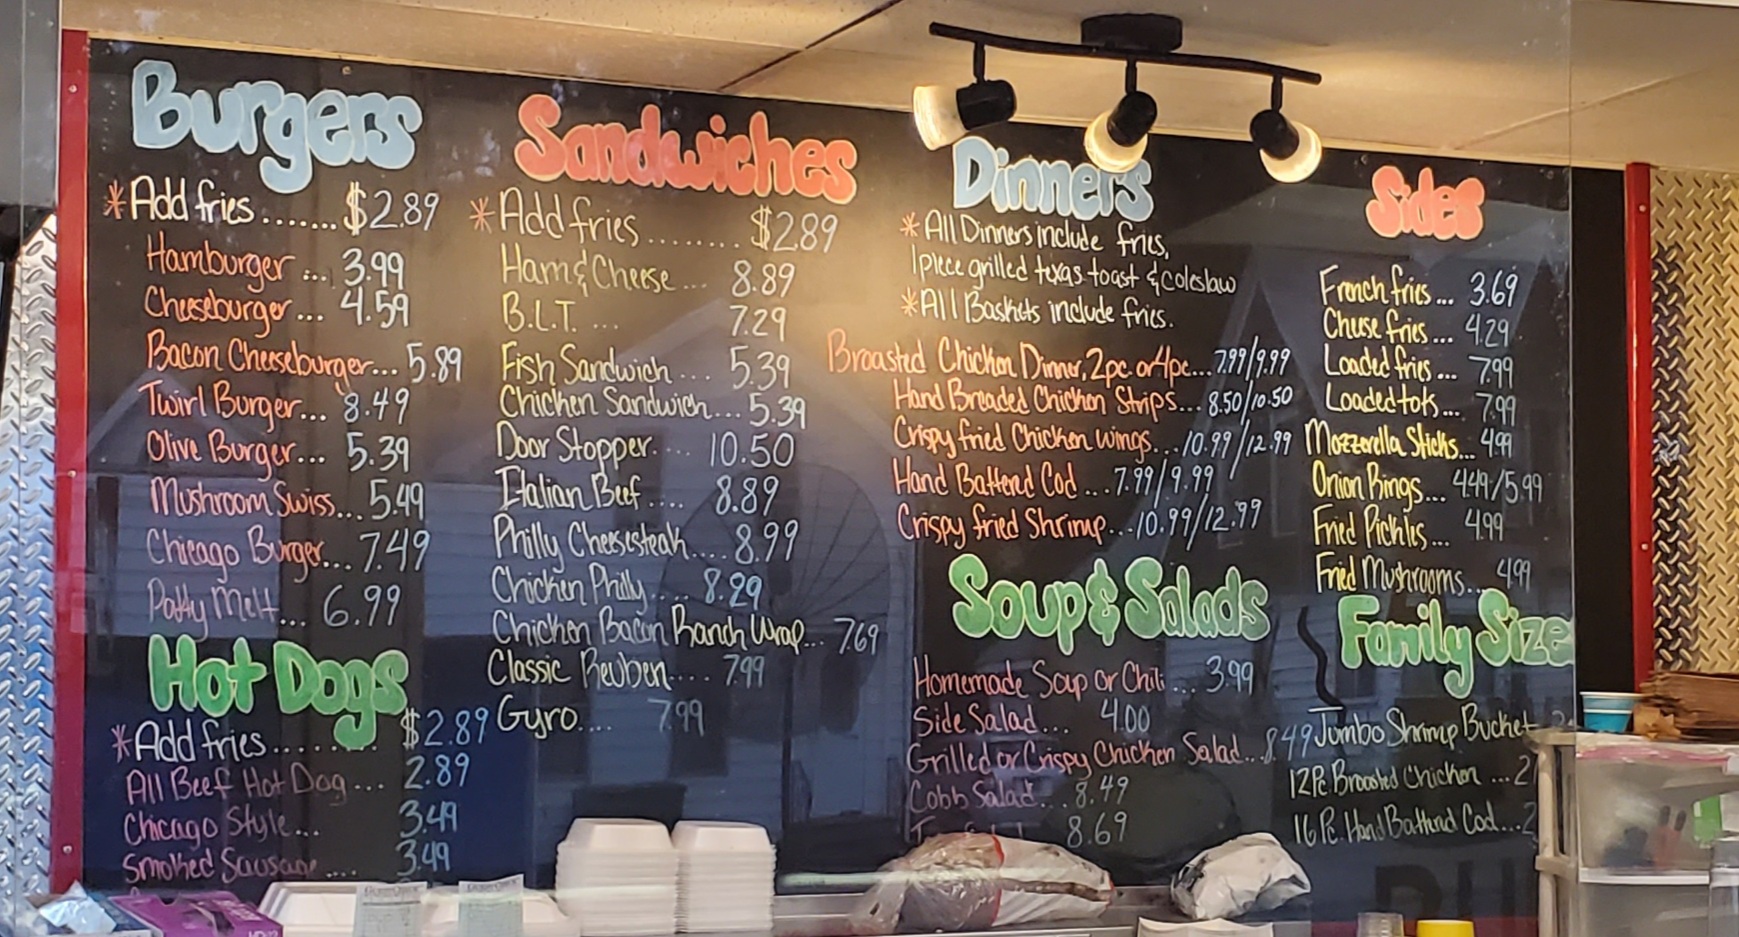 Burgers
*Add fries....... $2.89
Hamburger ... 3.99
Cheeseburger ... 4.59
Bacon Cheeseburger... 5.89
Twirl Burger... 8.49
Olive Burger... 5.39
Mushroom Swiss... 5.49
Chicago Burger... 7.49
Patty Melt... 6.99
Hot Dogs
*Add fries........ $2.89
All Beef Hot Dog ... 2.89
Chicago Style... 3.49
Smoked Sausage .... 3.49
Sandwiches
*Add fries........ $2.89
Ham & Cheese ... 8.89
B.L.T. ... 7.29
Fish Sandwich ... 5.39
Chicken Sandwich... 5.39
Door Stopper.... 10.50
Italian Beef .... 8.89
Philly Cheesesteak.... 8.99
Chicken Philly.... 8.29
Chicken Bacon Ranch Wrap... 7.69
Classic Reuben.... 7.99
Gyro.... 7.99
Dinners
*All Dinners include fries,
1 piece grilled texas toast & coleslaw
*All Baskets include fries.
Broasted Chicken Dinner, 2pc. or 4pc...7.99/9.99
Hand Breaded Chicken Strips... 8.50/10.50
Crispy fried Chicken wings...10.99/12.99
Hand Battered Cod ...7.99/9.99
Crispy fried Shrimp...10.99/12.99
Soup & Salads
Homemade Soup or Chili ... 3.99
Side Salad... 4.00
Grilled or Crispy Chicken Salad...8.49
Cobb Salad... 8.49
8.69
Sides
French fries ... 3.69
Cheese fries ... 4.29
Loaded fries ... 7.99
Loaded tots... 7.99
Mozzarella Sticks... 4.99
Onion Rings... 4.49/5.99
Fried Pickles... 4.99
Fried Mushrooms... 4.99
Family Size
Jumbo Shrimp Bucket
12 Pc Broasted Chicken ...2
16 Pc. Hand Battered Cod...2